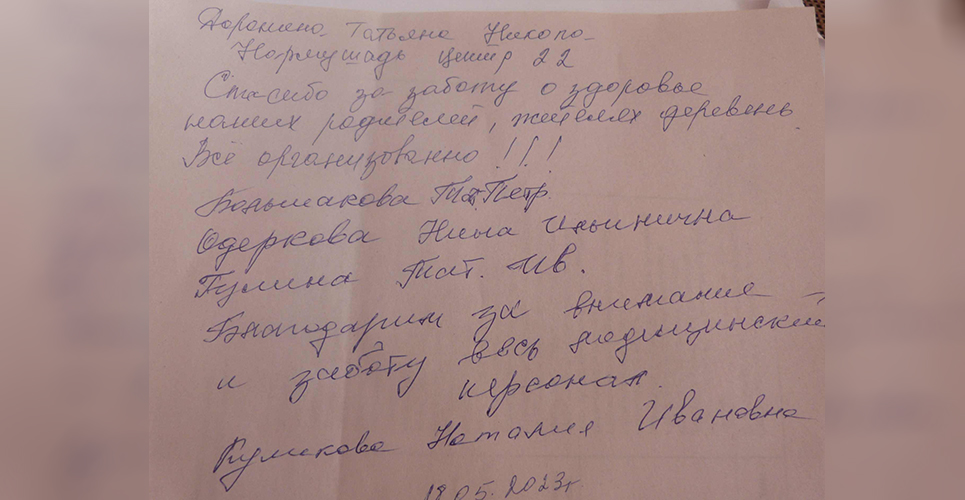 Доронина Татьяна Никола-
центр 22
Спасибо за заботу о здоровье
наших родителей, жителях деревень.
Всё организованно!!!
Большакова Тат. Петр.
Одеркова Нина Ильинична
Гулина Тат. Ив.
Благодарим за внимание
и заботу весь медицинский
персонал.
Куликова Наталия Ивановна
18.05.2023г